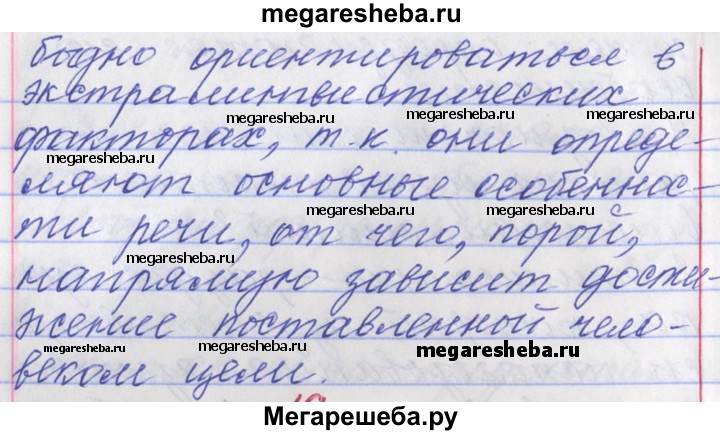 megaresheba.ru
бодно ориентироваться в
экстралингвистических
факторах, т.к. они опреде-
megaresheba.ru megaresheba.ru
ляют основные особеннос-
megaresheba.ru megaresheba.ru
ти речи, от чего, порой,
megaresheba.ru
напрямую зависит дости-
жение поставленной чело-
megaresheba.ru megaresheba.ru megaresheba.ru
веком цели.
Мегарешеба.ру